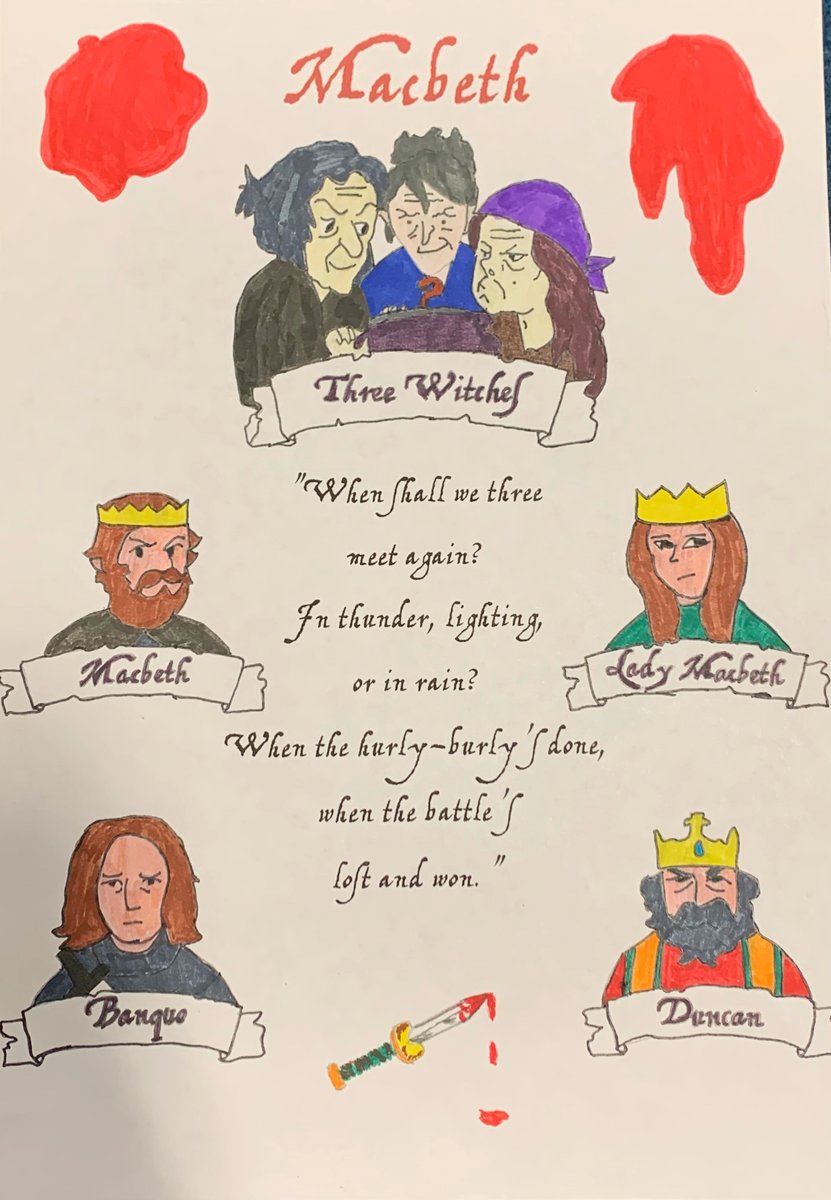 Macbeth
Three Witches
"When shall we three
meet again?
In thunder, lighting,
or in rain?
Macbeth
Lady Macbeth
When the hurly-burly's done,
when the battle's
lost and won. "
Banquo
Duncan